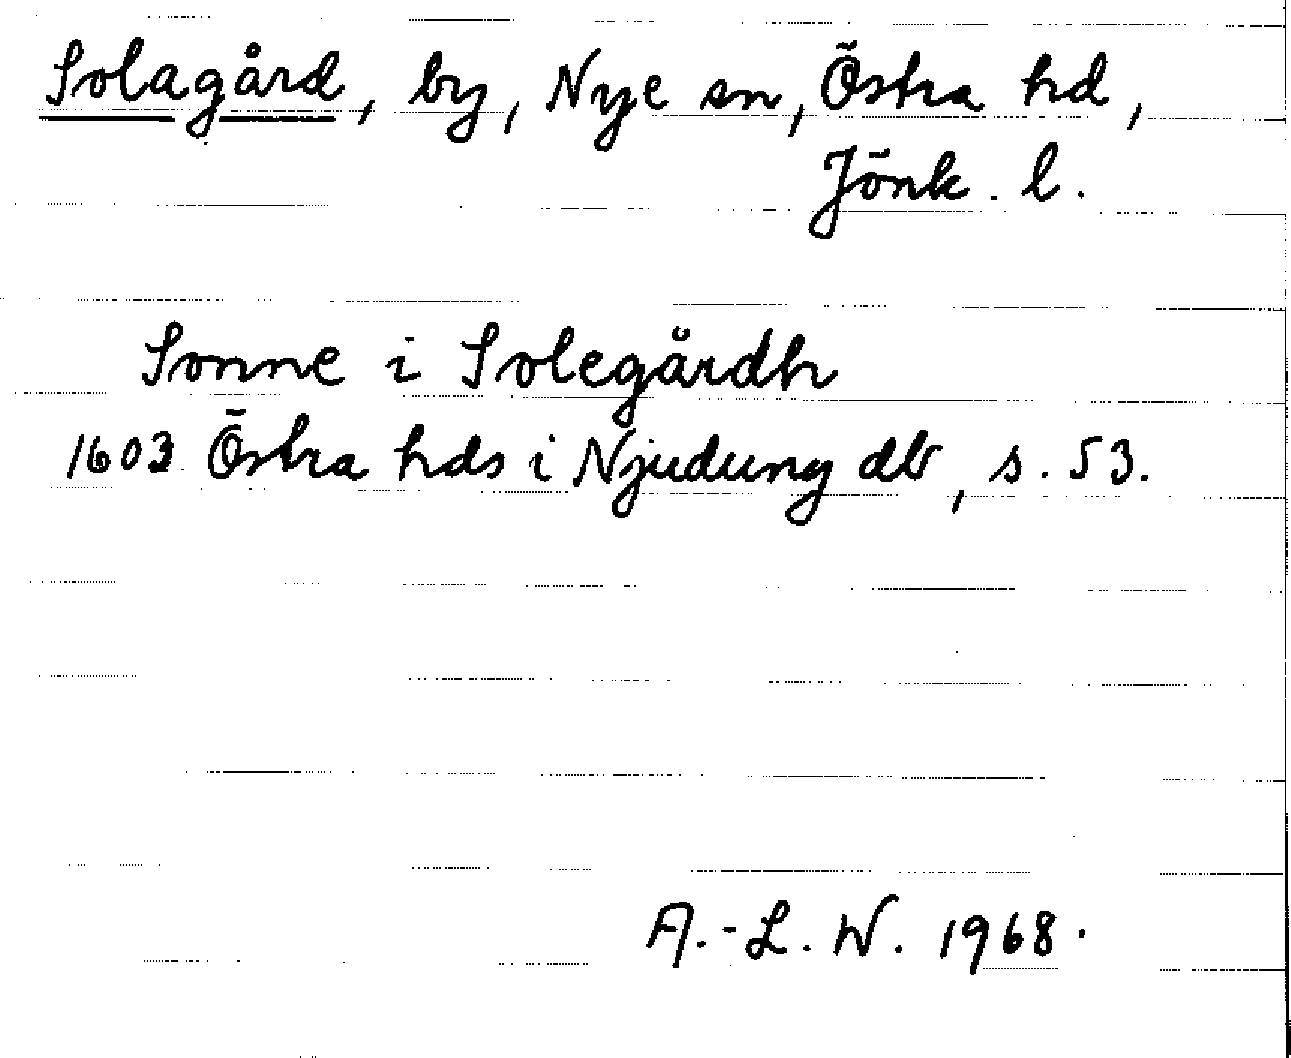 Solagård, by, Nye sn, Östra hd,
Jönk. l.
Sonne i Solegårdh
1603 Östra hds i Njudung db, s. 53.
A.-L. W. 1968.